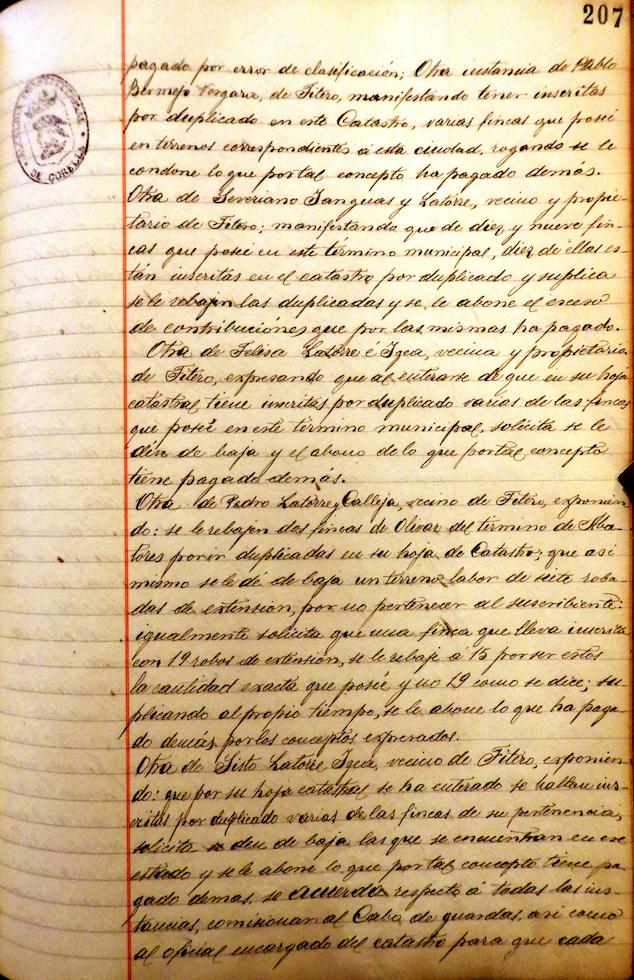 207
DE CORELLA
pagado por error de clasificación; Otra instancia de Pablo
Bermejo Vergara, de Fitero, manifestando tener inscritas
por duplicado en este Catastro, varias fincas que poseé
en terrenos correspondientes á esta ciudad, rogando se le
condone lo que por tal concepto ha pagado demás.
Otra de Severiano Yanguas y Latorre, vecino y propie-
tario de Fitero; manifestando que de diez y nueve fin-
cas que posee en este término municipal, diez de ellas es-
tán inscritas en el catastro por duplicado y suplica
se le rebajen las duplicadas y se le abone el exceso
de contribuciónes que por las mismas ha pagado.
Otra de Felisa Latorre é Igea, vecina y propietaria
de Fitero, expresando que al enterarse de que en su hoja
catastral tiene inscritas por duplicado varias de las fincas
que poseé en este término municipal, solicita se le
dén de baja y el abono de lo que por tal concepto
tiene pagado demás.
Otra de Pedro Latorre y Calleja, vecino de Fitero, exponien
do: se le rebajen dos fincas de Olivar del término de Aba-
tores por ir duplicadas en su hoja de Catastro; que asi
mismo se le dé de baja un terreno labor de siete roba-
das de extension, por no pertenecer al suscribiente:
igualmente solicita que una finca que lleva inscrita
con 19 robos de extensión, se le rebaje á 15 por ser estos
la cantidad exacta que poseé y no 19 como se dice; su-
plicando al propio tiempo, se le abone lo que ha paga-
do demás por los conceptos expresados.
Otra de Sisto Latorre Igea, vecino de Fitero, exponien-
do: que por su hoja catastral se ha enterado se hallan ins-
critas por duplicado varias de las fincas de su pertenencia;
solicita se den de baja las que se encuentran en ese
estado y se le abone lo que por tal concepto tiene pa-
gado demas, se acuerda respecto á todas las ins-
tancias, comisionan al Cabo de guardas, asi como
al oficial encargado del catastro para que cada